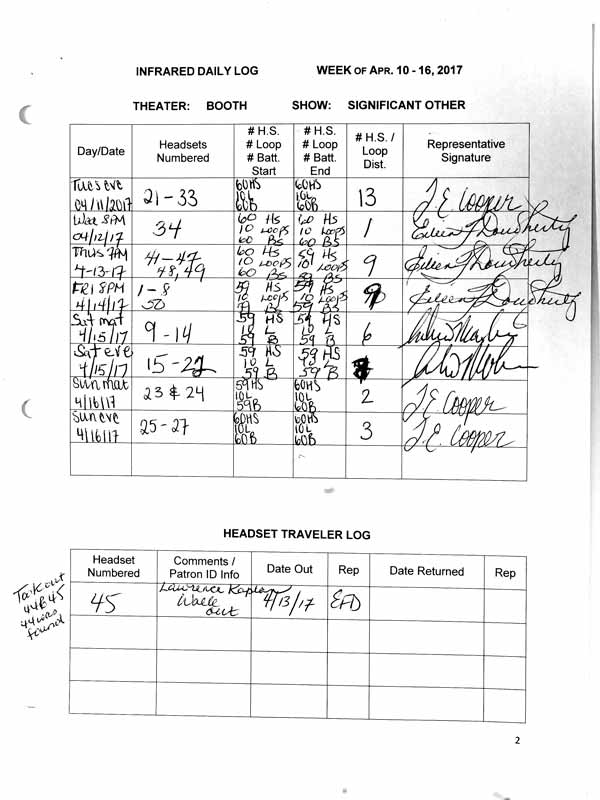 INFRARED DAILY LOG WEEK OF APR. 10 - 16, 2017
THEATER: BOOTH SHOW: SIGNIFICANT OTHER
Day/Date Headsets Numbered # H.S. # Loop # Batt. Start # H.S. # Loop # Batt. End # H.S. / Loop Dist. Representative Signature
Tues eve 04/11/2017 21-33 60HS 10L 60B 60HS 10L 60B 13 J. E. Cooper
Wed 8PM 04/12/17 34 60 HS 10 Loops 60 BS 60 HS 10 Loops 60 BS 1 Eileen F Dougherty
Thus 7PM 4-13-17 41-47 48,49 60 HS 10 Loops 60 BS 59 HS 10 Loops BS 9 Eileen F Dougherty
FRI 8PM 4/14/17 1-8 50 59 HS 10 Loops BS 59 HS 10 Loops 59 BS 9 Eileen F Dougherty
Sat mat 4/15/17 9-14 59 HS 10 L 59 B 59 HS 10 L 59 B 6
Sat eve 4/15/17 15-22 59 HS 10 L 59 B 59 HS 10 L 59 B
Sun mat 4/16/17 23 & 24 59HS 10L 59B 60HS 10L 60B 2 J. E. Cooper
Sun eve 4/16/17 25-27 60HS 10L 60B 60HS 10L 60B 3 J. E. Cooper
HEADSET TRAVELER LOG
Headset Numbered Comments / Patron ID Info Date Out Rep Date Returned Rep
45 Lawrence Kaplan Walk out 4/13/17 EFD
Took out
44 & 45
44 was
found
2